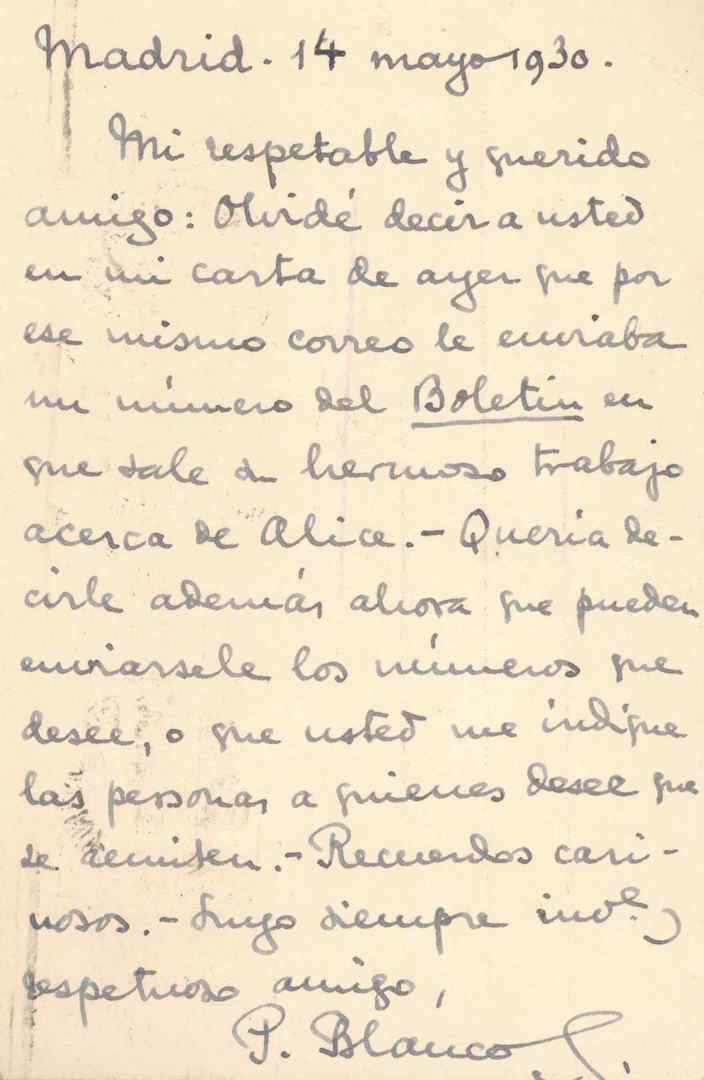 Madrid. 14 mayo 1930.
Mi respetable y querido
amigo: Olvidé decir a usted
en mi carta de ayer que por
ese mismo correo le enviaba
un número del Boletín en
que sale su hermoso trabajo
acerca de Alice.- Quería de-
cirle además ahora que pueden
enviarsele los números que
desee, o que usted me indique
las personas a quienes desee que
se remiten.- Recuerdos cari-
ñosos.- Suyo siempre inv.e y
respetuoso amigo,
P. Blanco